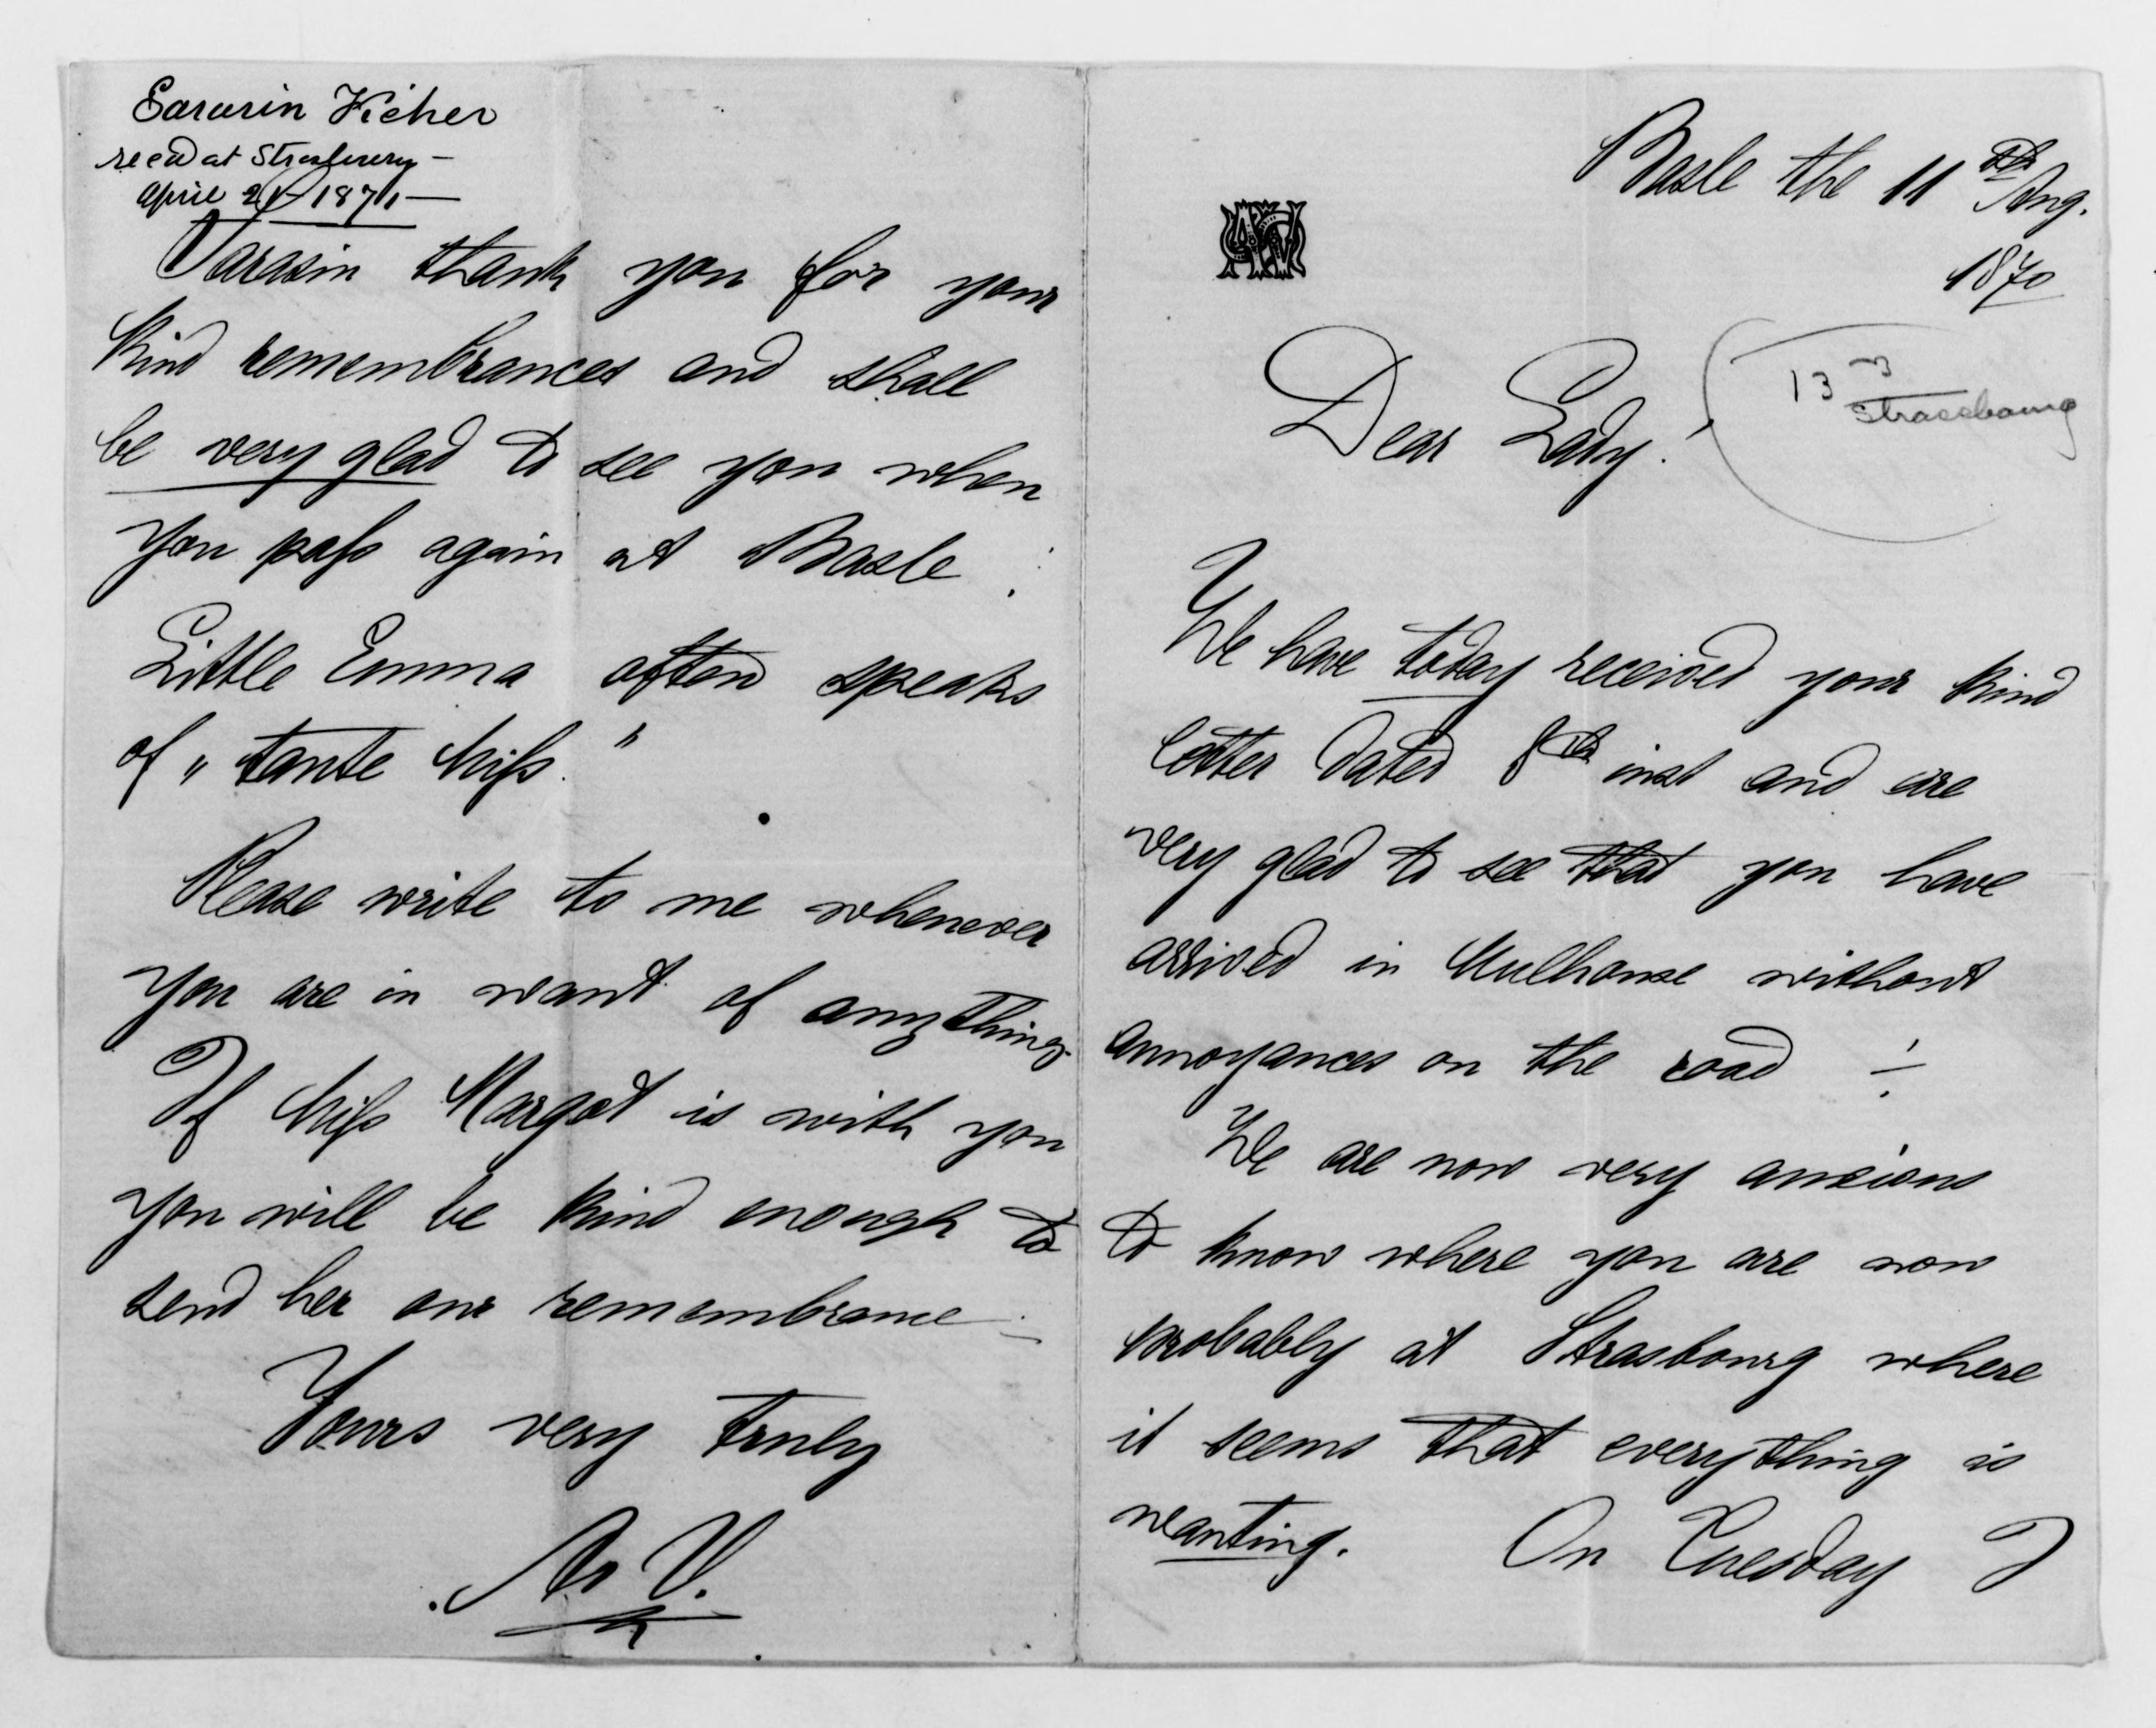 Basle the 11th Aug.
1870
13
Strassbourg
Dear Lady!
We have today received your kind
letter dated 8th inst and are
very glad to see that you have
arrived in Mulhouse without
annoyances on the road
We are now very anxious
to know where you are now
probably at Strasbourg where
it seems that everything is
wanting. On Tuesday I
rec'd at Strasburg —
April 21 1871 —
Sarasin thank you for your
kind remembrances and shall
be very glad to see you when
you pass again at Basle!
Little Emma often speaks
of "tante Miss."
Please write to me whenever
you are in want of anything.
If Miss Margot is with you
you will be kind enough to
send her our remembrance
Yours very truly
V.